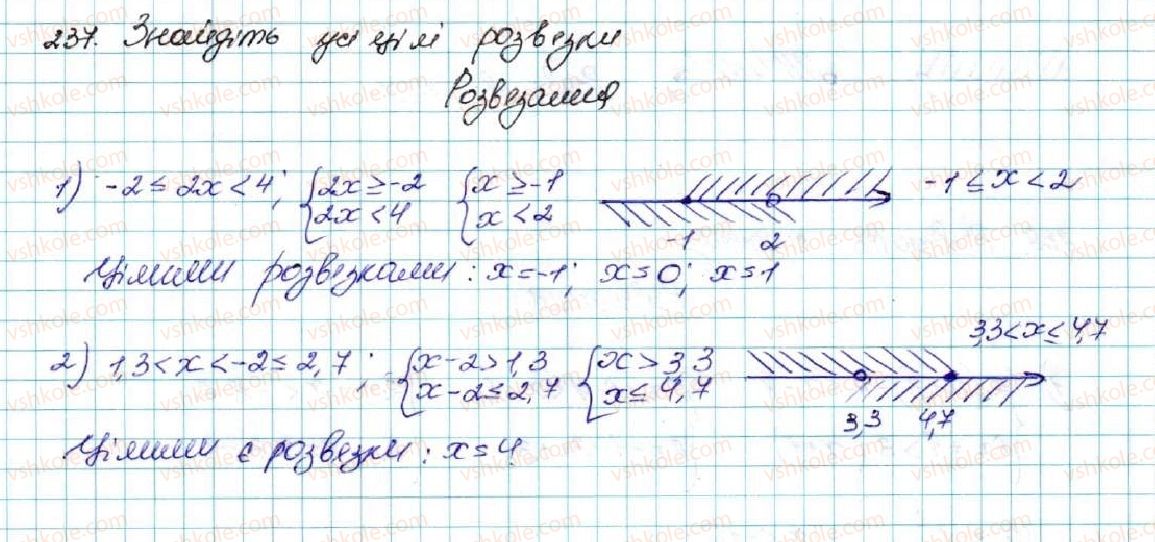 237. Знайдіть усі цілі розвезки
Розвезання
1) -2 ≤ 2x < 4; {2x ≥ -2 {x ≥ -1 -1 ≤ x < 2
2x < 4 x < 2
-1 2
Цілими розвезками: x = -1; x = 0; x = 1
3,3 < x ≤ 4,7
2) 1,3 < x < -2 ≤ 2,7; {x - 2 > 1,3 {x > 3,3
x - 2 ≤ 2,7 x ≤ 4,7
3,3 4,7
Цілими є розвезки: x = 4
vshkole.com